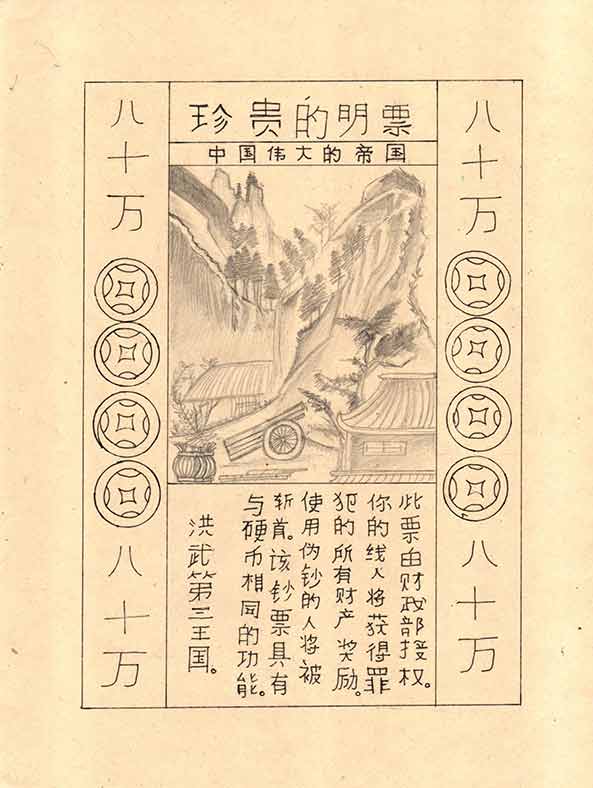 珍贵的明票
中国伟大的帝国
八十万
八十万
八十万
八十万
此票由财政部授权。
你的线人将获得罪
犯的所有财产奖励。
使用伪钞的人将被
斩首。该钞票具有
与硬币相同的功能。
洪武第三王国。